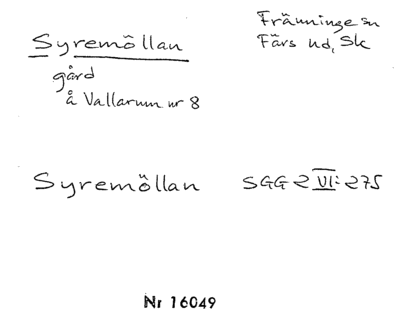 Syremöllan
Främninge sn
Färs hd, Sk
gård
å Vallarum nr 8
Syremöllan SGG 2 VI: 275
Nr 16049